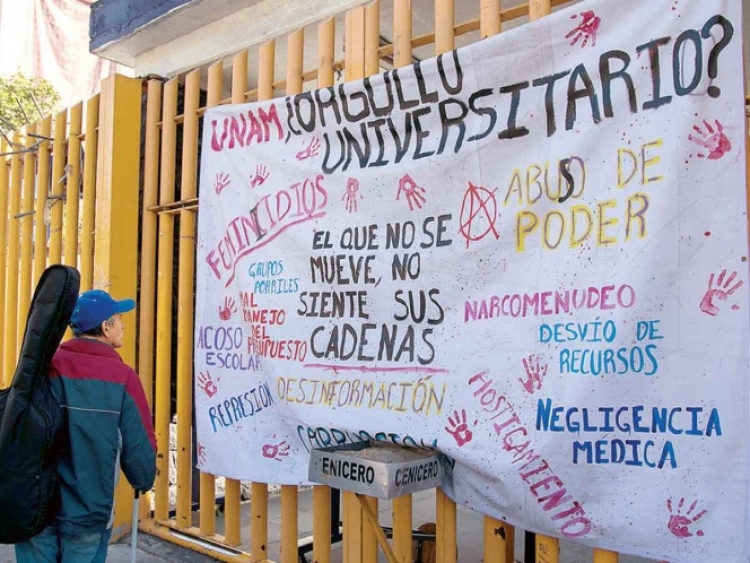 UNAM ¿ORGULLO
UNIVERSITARIO?
FEMINICIDIOS
ABUSO DE
PODER
EL QUE NO SE
MUEVE, NO
SIENTE SUS
CADENAS
GRUPOS
PORRILES
MAL
MANEJO
DEL
PRESUPUESTO
ACOSO
ESCOLAR
NARCOMENUDEO
DESVÍO DE
RECURSOS
REPRESIÓN
DESINFORMACIÓN
HOSTIGAMIENTO
NEGLIGENCIA
MÉDICA
ENICERO
CENICERO